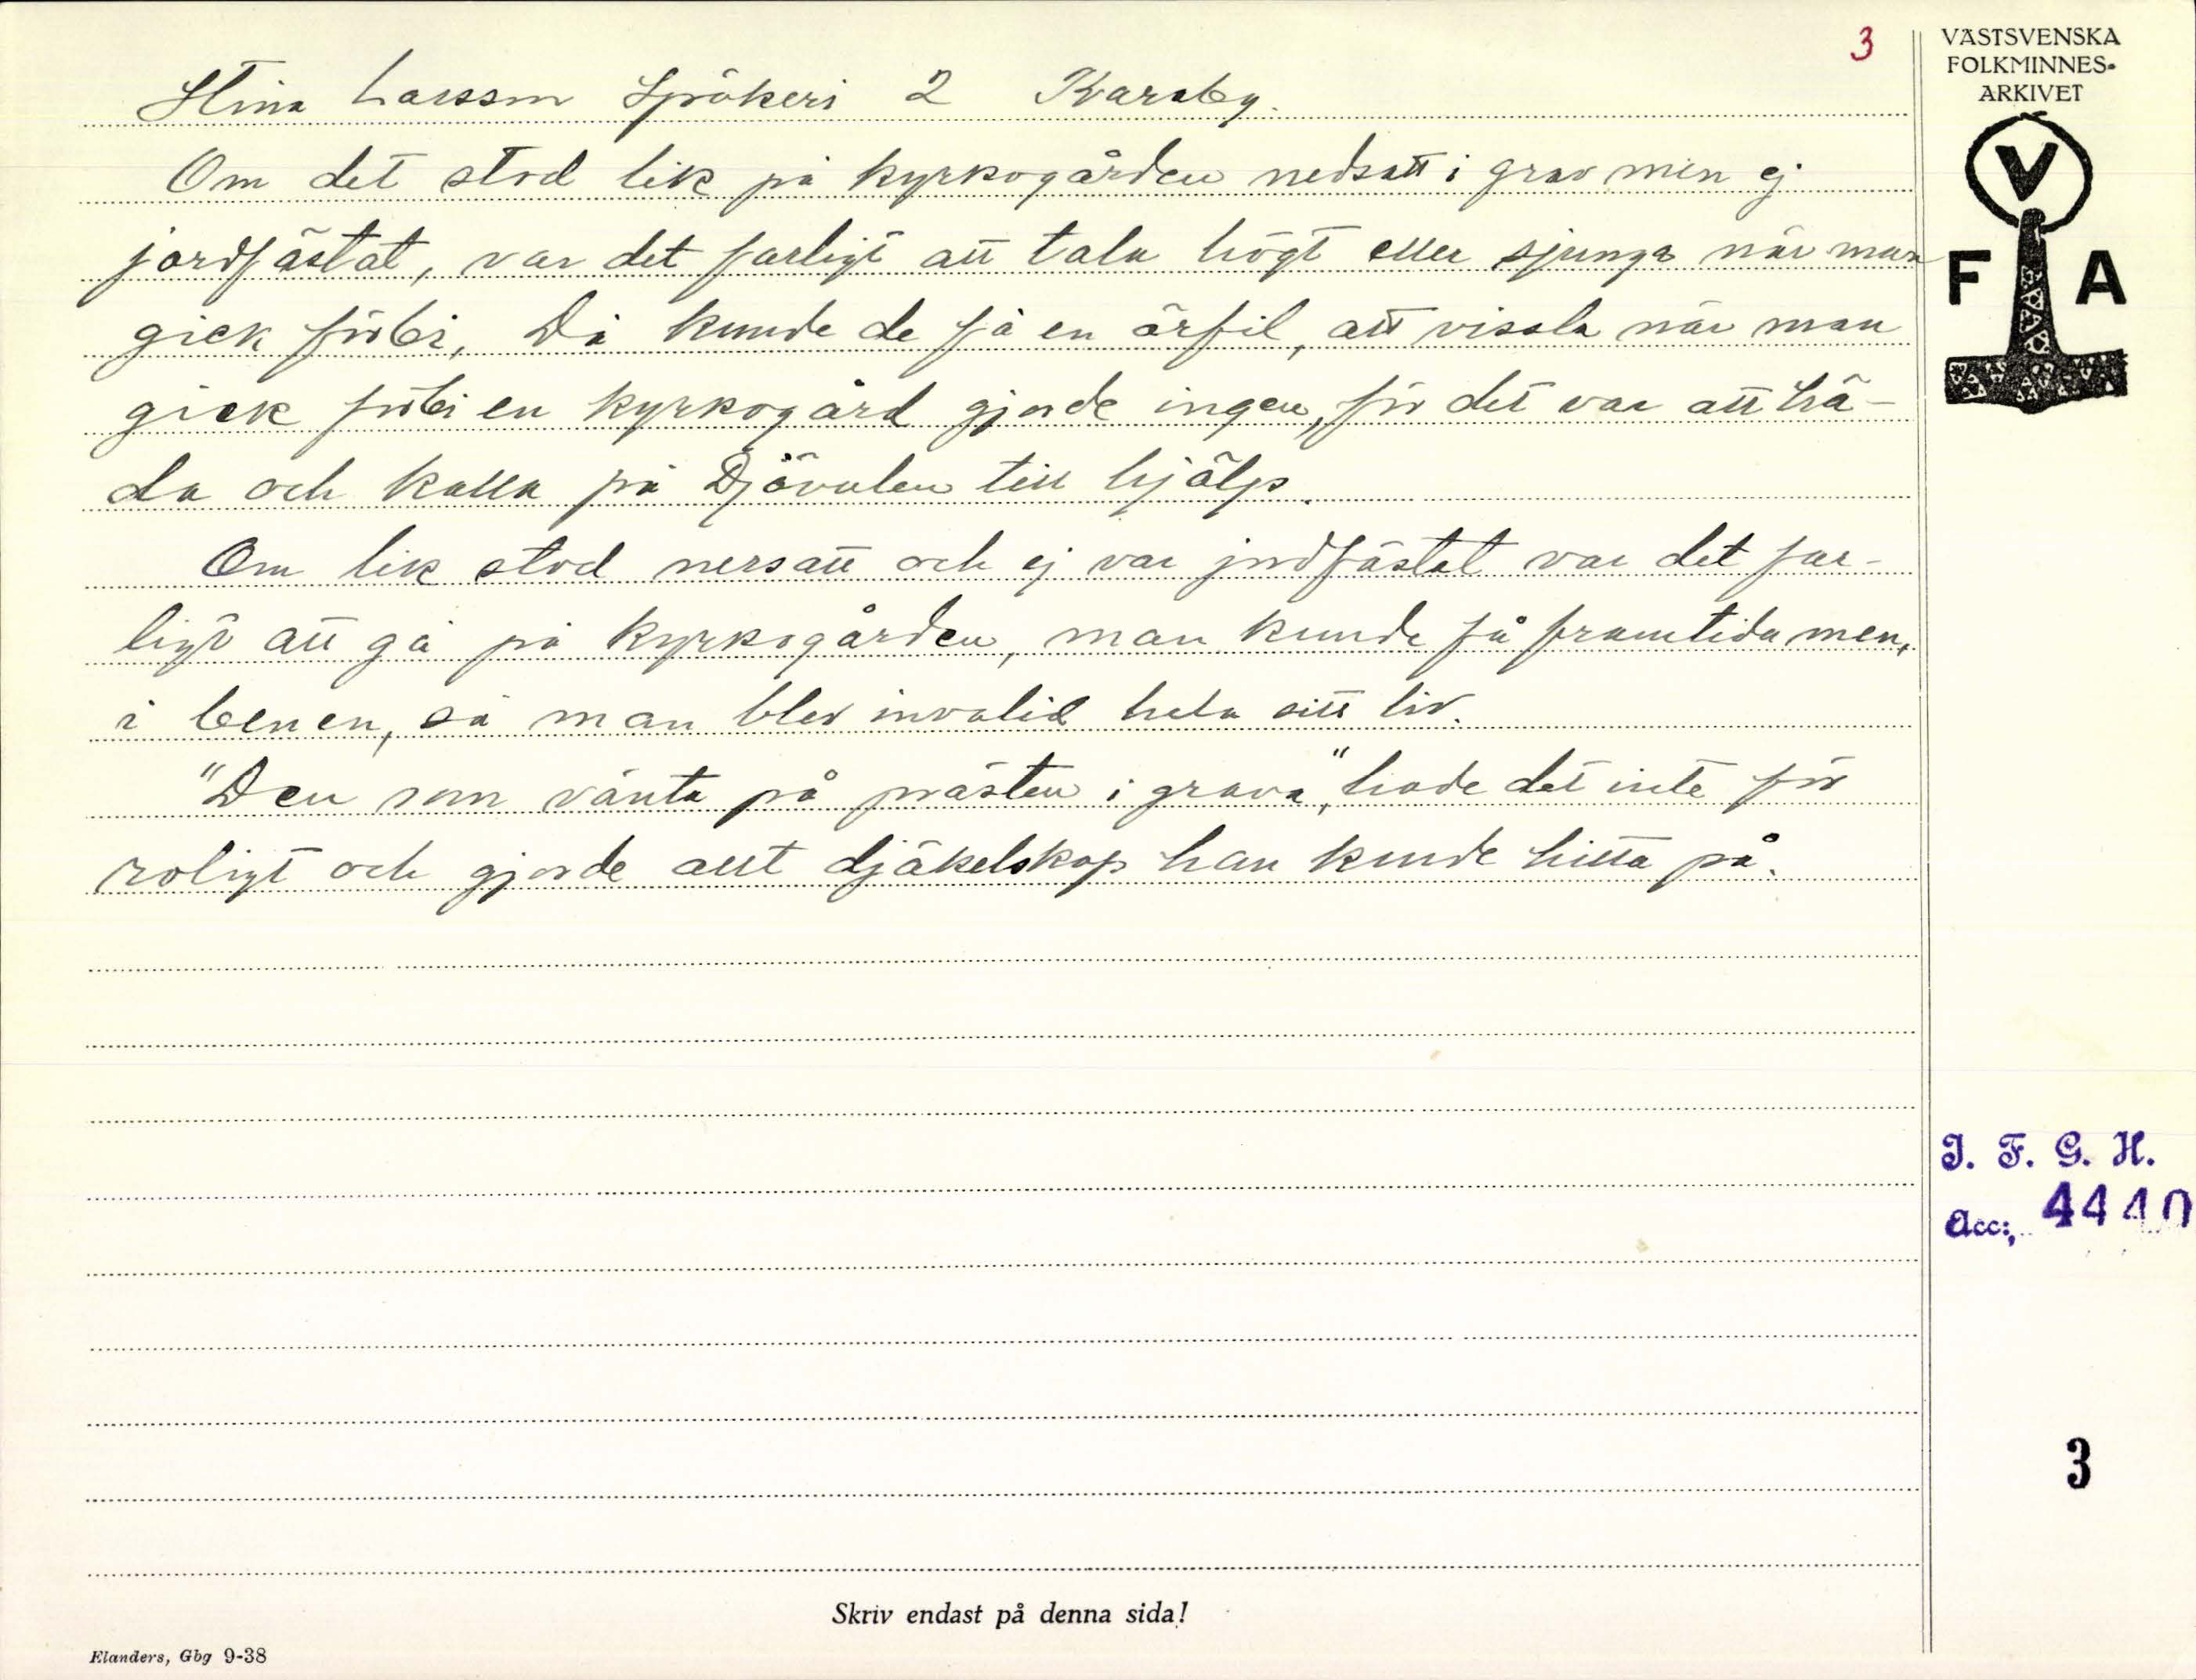 3
VÄSTSVENSKA
FOLKMINNES-
ARKIVET
V
F A
Stina Larsson Spökeri 2 Karaby.
Om det stod lik på kyrkogården nedsatt i grav men ej
jordfästat, var det farligt att tala högt eller sjunga när man
gick förbi, Då kunde de få en örfil, att vissla när man
gick förbi en kyrkogård gjorde ingen, för det var att hä-
da och kalla på Djävulen till hjälp.
Om lik stod nersatt och ej var jordfästat var det far-
ligt att gå på kyrkogården, man kunde få framtida men,
i benen, så man blev invalid hela sitt liv.
"Den som vänta på prästen i grava", hade det inte för
roligt och gjorde allt djäkelskap han kunde hitta på.
I. F. G. H.
Acc:, 4440
3
Skriv endast på denna sida!
Elanders, Gbg 9-38